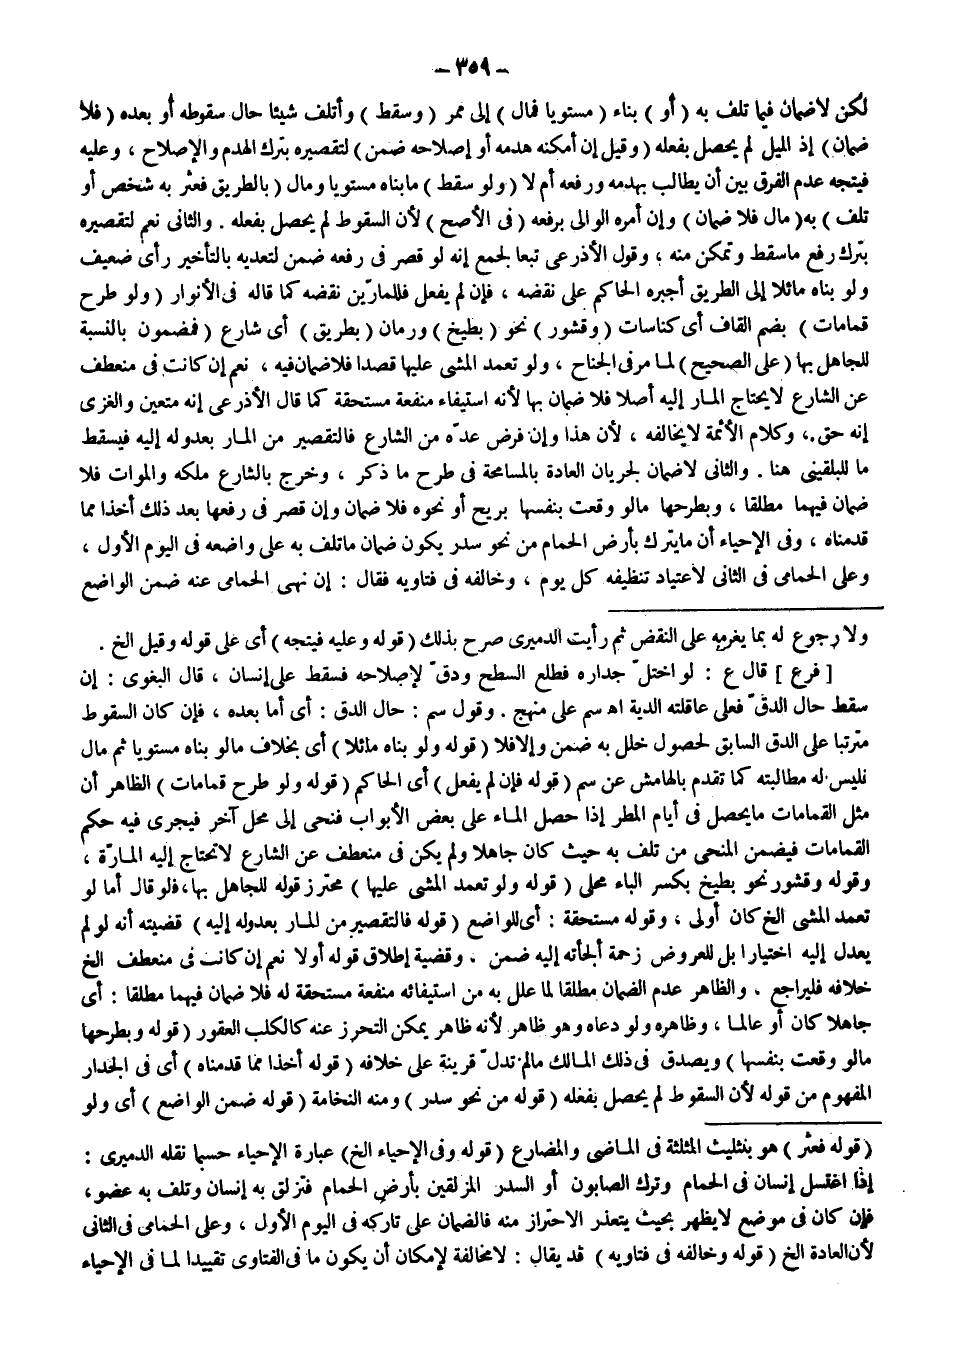 - ٣٥٩ -
لكن لاضمان فيما تلف به ( أو ) بناء ( مستويا فمال ) إلى ممر ( وسقط ) وأتلف شيئا حال سقوطه أو بعده ( فلا
ضمان ) إذ الميل لم يحصل بفعله ( وقيل إن أمكنه هدمه أو إصلاحه ضمن ) لتقصيره بترك الهدم والإصلاح ، وعليه
فيتجه عدم الفرق بين أن يطالب بهدمه ورفعه أم لا ( ولو سقط ) مابناه مستويا ومال ( بالطريق فعثر به شخص أو
تلف ) به ( مال فلا ضمان ) وإن أمره الوالى برفعه ( فى الأصح ) لأن السقوط لم يحصل بفعله . والثانى نعم لتقصيره
بترك رفع ماسقط وتمكن منه ، وقول الأذرعى تبعا لجمع إنه لو قصر فى رفعه ضمن لتعديه بالتأخير رأى ضعيف
ولو بناه مائلا إلى الطريق أجبره الحاكم على نقضه ، فإن لم يفعل فللمارّين نقضه كما قاله فى الأنوار ( ولو طرح
قمامات ) بضم القاف أى كناسات ( وقشور ) نحو ( بطيخ ) ورمان ( بطريق ) أى شارع ( فمضمون بالنسبة
للجاهل بها ( على الصحيح ) لما مر فى الجناح ، ولو تعمد المشى عليها قصدا فلاضمان فيه ، نعم إن كانت فى منعطف
عن الشارع لايحتاج المار إليه أصلا فلا ضمان بها لأنه استيفاء منفعة مستحقة كما قال الأذرعى إنه متعين والغزى
إنه حق ، وكلام الأئمة لايخالفه ، لأن هذا وإن فرض عدّه من الشارع فالتقصير من المار بعدوله إليه فيسقط
ما للبلقينى هنا . والثانى لاضمان لجريان العادة بالمسامحة فى طرح ما ذكر ، وخرج بالشارع ملكه والموات فلا
ضمان فيهما مطلقا ، وبطرحها مالو وقعت بنفسها بريح أو نحوه فلا ضمان وإن قصر فى رفعها بعد ذلك أخذا مما
قدمناه ، وفى الإحياء أن مايترك بأرض الحمام من نحو سدر يكون ضمان ماتلف به على واضعه فى اليوم الأول ،
وعلى الحمامى فى الثانى لاعتياد تنظيفه كل يوم ، وخالفه فى فتاويه فقال : إن نهى الحمامى عنه ضمن الواضع
ولا رجوع له بما يغرمه على النقض ثم رأيت الدميرى صرح بذلك ( قوله وعليه فيتجه ) أى على قوله وقيل الخ .
[ فرع ] قال ع : لو اختلّ جداره فطلع السطح ودقّ لإصلاحه فسقط على إنسان ، قال البغوى : إن
سقط حال الدقّ فعلى عاقلته الدية اه سم على منهج . وقول سم : حال الدق : أى أما بعده ، فإن كان السقوط
مترتبا على الدق السابق لحصول خلل به ضمن وإلافلا ( قوله ولو بناه مائلا ) أى بخلاف مالو بناه مستويا ثم مال
فليس له مطالبته كما تقدم بالهامش عن سم ( قوله فإن لم يفعل ) أى الحاكم ( قوله ولو طرح قمامات ) الظاهر أن
مثل القمامات مايحصل فى أيام المطر إذا حصل الماء على بعض الأبواب فنحى إلى محل آخر فيجرى فيه حكم
القمامات فيضمن المنحى من تلف به حيث كان جاهلا ولم يكن فى منعطف عن الشارع لاتحتاج إليه المارّة ،
وقوله وقشور نحو بطيخ بكسر الباء محلى ( قوله ولو تعمد المشى عليها ) محترز قوله للجاهل بها ، فلو قال أما لو
تعمد المشى الخ كان أولى ، وقوله مستحقة : أى للواضع ( قوله فالتقصير من المار بعدوله إليه ) قضيته أنه لو لم
يعدل إليه اختيارا بل للعروض زحمة ألجأته إليه ضمن . وقضية إطلاق قوله أولا نعم إن كانت فى منعطف الخ
خلافه فليراجع . والظاهر عدم الضمان مطلقا لما علل به من استيفائه منفعة مستحقة له فلا ضمان فيهما مطلقا : أى
جاهلا كان أو عالما ، وظاهره ولو دعاه وهو ظاهر لأنه ظاهر يمكن التحرز عنه كالكلب العقور ( قوله وبطرحها
مالو وقعت بنفسها ) ويصدق فى ذلك المالك مالم تدلّ قرينة على خلافه ( قوله أخذا مما قدمناه ) أى فى الجدار
المفهوم من قوله لأن السقوط لم يحصل بفعله ( قوله من نحو سدر ) ومنه النخامة ( قوله ضمن الواضع ) أى ولو
( قوله فعثر ) هو بتثليث المثلثة فى الماضى والمضارع ( قوله وفى الإحياء الخ ) عبارة الإحياء حسبما نقله الدميرى :
إذا اغتسل إنسان فى الحمام وترك الصابون أو السدر المزلقين بأرض الحمام فتزلق به إنسان وتلف به عضو ،
فإن كان فى موضع لايظهر بحيث يتعذر الاحتراز منه فالضمان على تاركه فى اليوم الأول ، وعلى الحمامى فى الثانى
لأن العادة الخ ( قوله وخالفه فى فتاويه ) قد يقال : لامخالفة لإمكان أن يكون ما فى الفتاوى تقييدا لما فى الإحياء